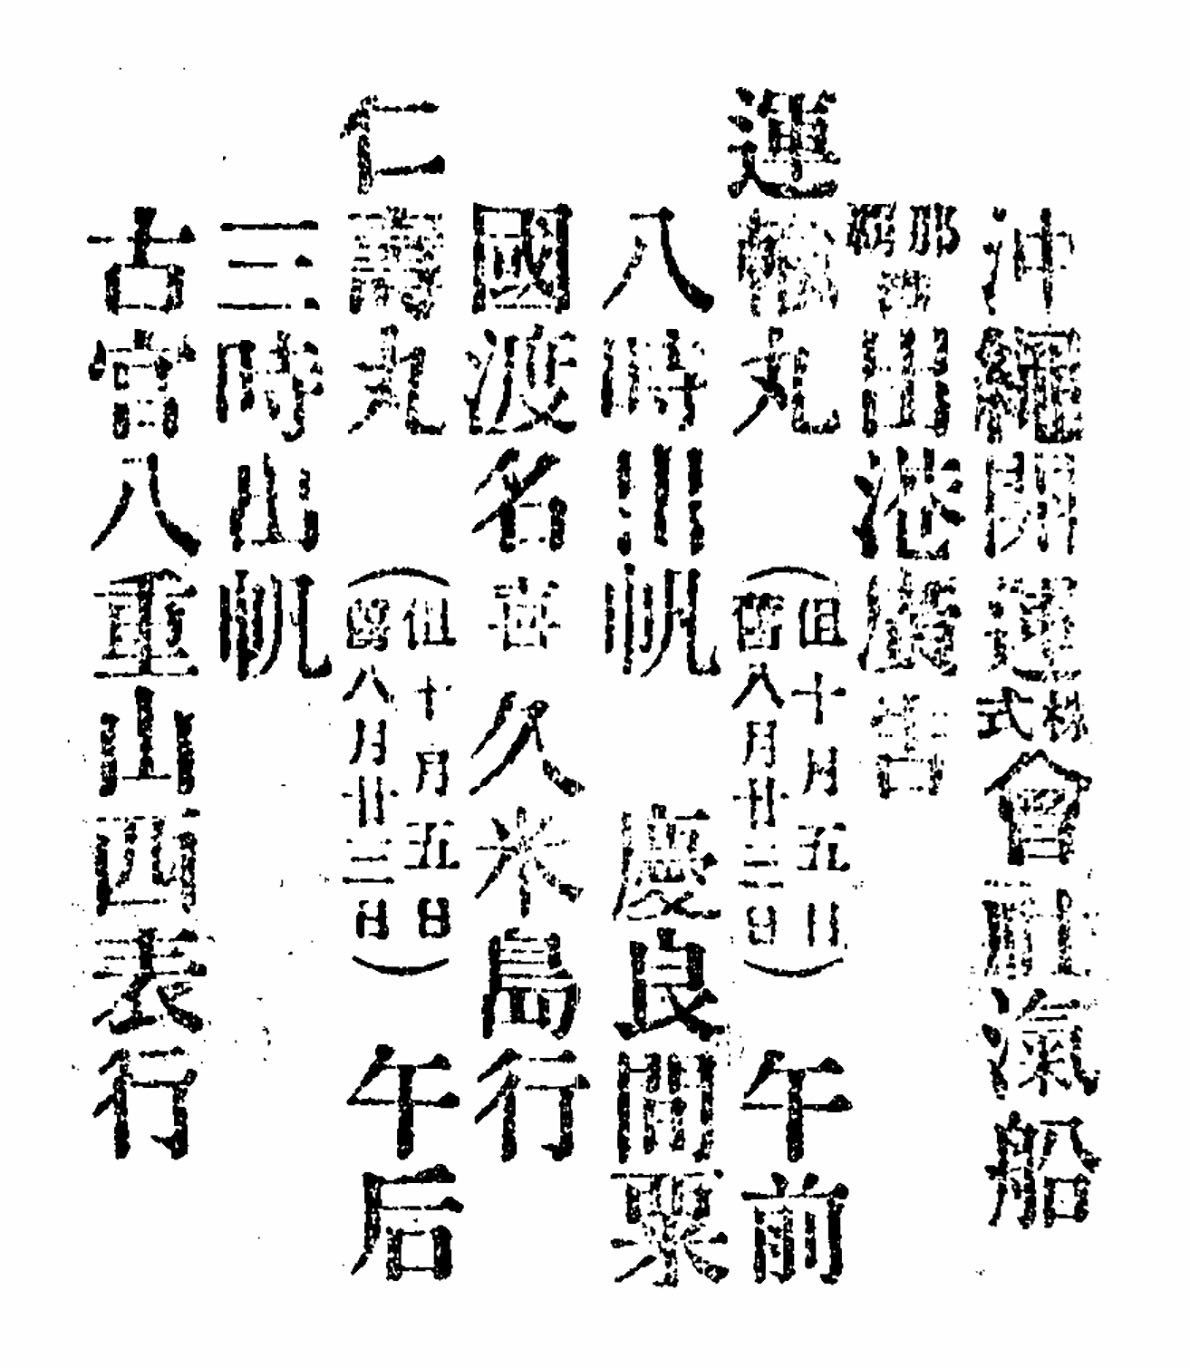 沖繩開運株式會社滊船
那覇出港廣告
運輸丸(但十月五日舊八月廿三日)午前
八時出帆 慶良間粟
國渡名喜久米島行
仁壽丸(但十月五日舊八月廿三日)午后
三時出帆
古宮八重山西表行